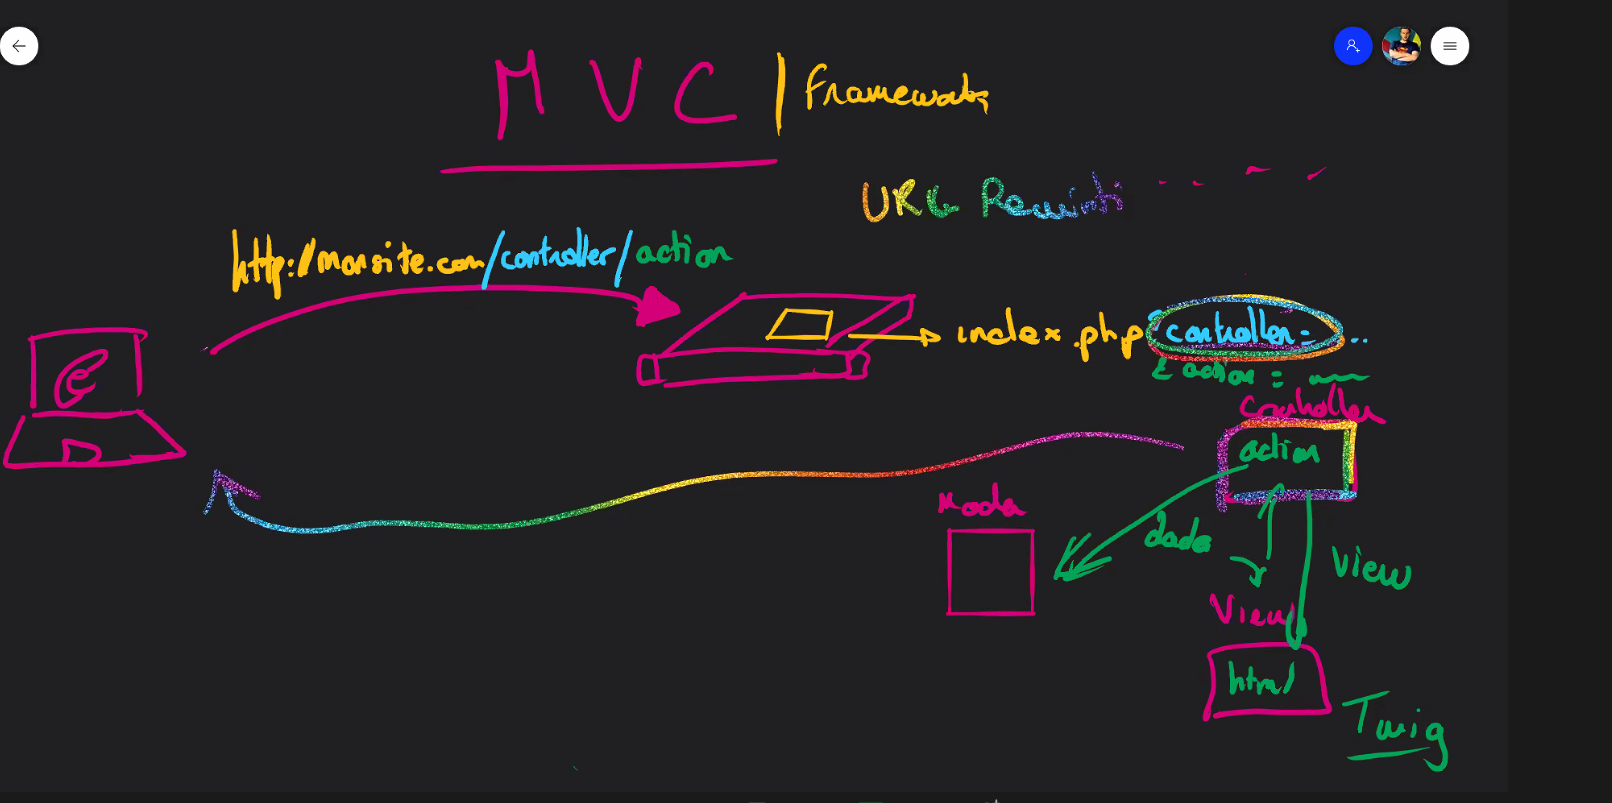 MVC | Frameworks
URL Rewriti
http://monsite.com/controller/action
index.php
controller = ..
& action =
Controller
action
Model
dada
View
View
html
Twig